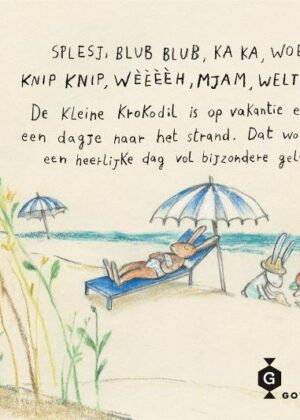 SPLESJ, BLUB BLUB, KA KA, WOE
KNIP KNIP, WÈÈÈÈH, MJAM, WELT
De kleine krokodil is op vakantie e
een dagje naar het strand. Dat wo
een heerlijke dag vol bijzondere gel
G
GO